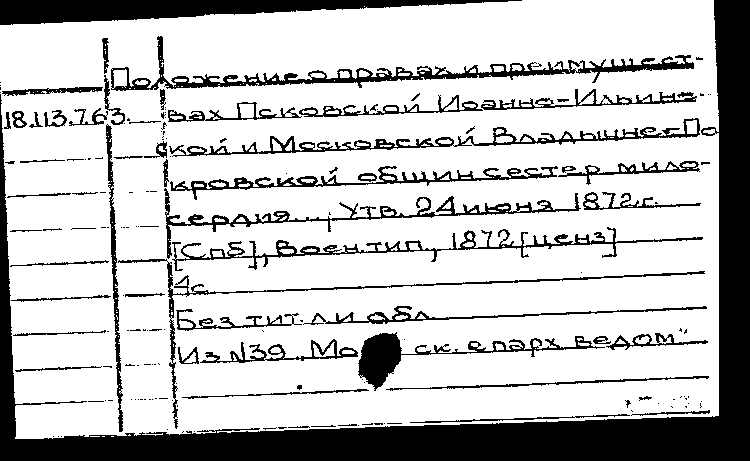 Положение о правах и преимущест-
18.113.7.63. вах Псковской Иоанно-Ильинс-
ской и Московской Владычне-По
кровской общин сестер мило-
сердия..., Утв. 24 июня 1872 г.
[Спб], Воен. тип., 1872 [ценз]
4с.
Без тит. л и обл
Из N39 „Мо ск. епарх ведом"